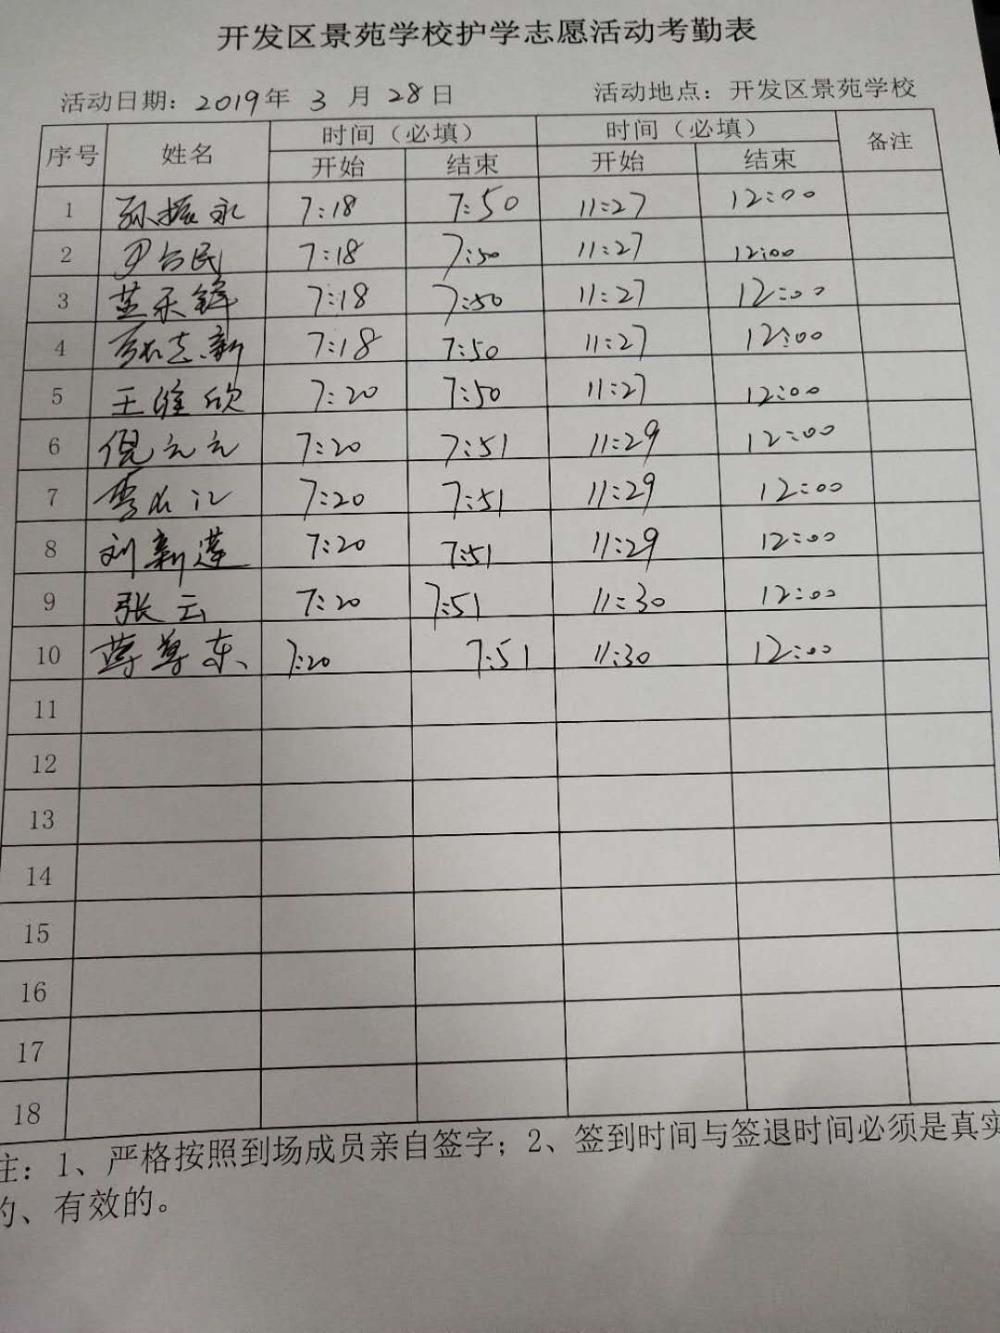 开发区景苑学校护学志愿活动考勤表
活动日期：2019年 3 月 28日 活动地点：开发区景苑学校
序号 姓名 时间（必填） 时间（必填） 备注
开始 结束 开始 结束
1 孙振永 7:18 7:50 11:27 12:00
2 尹台民 7:18 7:50 11:27 12:00
3 7:18 7:50 11:27 12:00
4 志新 7:18 7:50 11:27 12:00
5 王维欣 7:20 7:50 11:27 12:00
6 倪元元 7:20 7:51 11:29 12:00
7 7:20 7:51 11:29 12:00
8 刘新莲 7:20 7:51 11:29 12:00
9 张云 7:20 7:51 11:30 12:00
10 蒋尊东 7:20 7:51 11:30 12:00
11
12
13
14
15
16
17
18
注：1、严格按照到场成员亲自签字；2、签到时间与签退时间必须是真实
的、有效的。